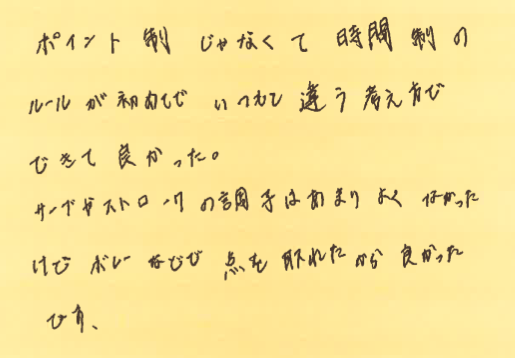 ポイント制じゃなくて時間制の
ルールが初めてで いつもと違う考え方で
できて良かった。
サーブやストロークの調子はあまりよくなかった
けど ボレーなどで 点を取れたから良かった
です、